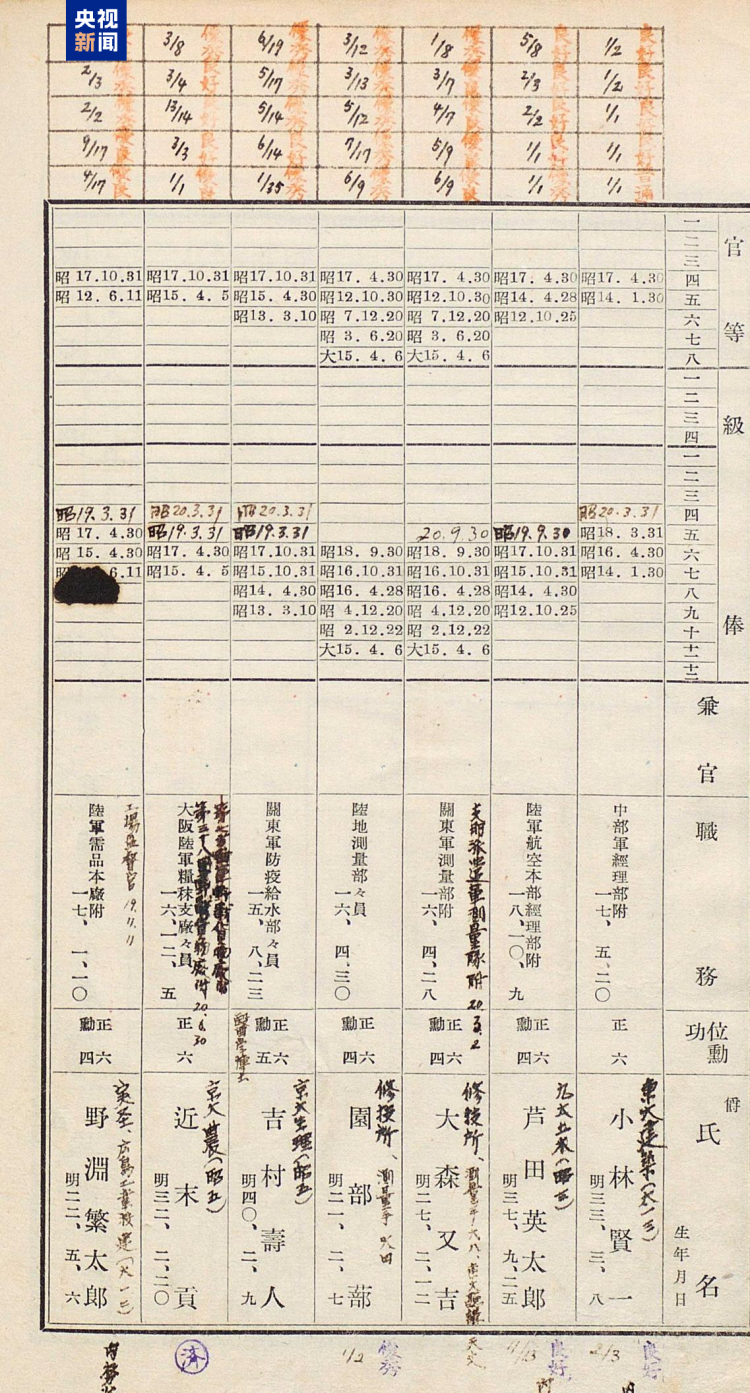 央视
新闻
3/8 6/19 3/12 1/8 5/8 1/2
2/3 3/4 5/17 3/13 3/7 2/3 1/2
2/2 13/14 5/14 5/12 4/7 2/2 1/1
9/17 3/3 6/14 7/17 5/9 1/1 1/1
4/17 1/1 1/35 6/9 6/9 1/1 1/1
官等
一
二
三
四
五
六
七
八
級俸
一
二
三
四
一
二
三
四
五
六
七
八
九
十
十一
十二
兼官
職務
位勳功
爵
氏名
生年月日
良好
良好
良好
昭17. 4.30
昭14. 1.30
昭20.3.31
昭18. 3.31
昭16. 4.30
昭14. 1.30
中部軍經理部附
一七、五、二〇
正六
東大建築(大一三)
小林賢一
明三三、三、八
2/3
良好
昭17. 4.30
昭14. 4.28
昭12.10.25
昭19.9.30
昭17.10.31
昭15.10.31
昭14. 4.30
昭12.10.25
陸軍航空本部經理部附
一八、一〇、九
正六
勳四
九大土木(昭三)
芦田英太郎
明三七、九、二五
良好
昭17. 4.30
昭12.10.30
昭 7.12.20
昭 3. 6.20
大15. 4. 6
20.9.30
昭18. 9.30
昭16.10.31
昭16. 4.28
昭 4.12.20
昭 2.12.22
大15. 4. 6
關東軍測量部附
一六、四、二八
支那派遣軍測量隊附
20.3.2
正六
勳四
修技所
大森又吉
明二七、二、一二
天文
昭17. 4.30
昭12.10.30
昭 7.12.20
昭 3. 6.20
大15. 4. 6
昭18. 9.30
昭16.10.31
昭16. 4.28
昭 4.12.20
昭 2.12.22
大15. 4. 6
陸地測量部々員
一六、四、三〇
正六
勳四
修技所
園部蔀
明二一、二、七
1/2
優秀
昭17.10.31
昭15. 4.30
昭13. 3.10
昭20.3.31
昭19.3.31
昭17.10.31
昭15.10.31
昭14. 4.30
昭13. 3.10
關東軍防疫給水部々員
一五、八、二三
正六
勳五
京大生理(昭五)
吉村壽人
明四〇、二、九
昭17.10.31
昭15. 4. 5
昭20.3.31
昭19.3.31
昭17. 4.30
昭15. 4. 5
大阪陸軍糧秣支廠々員
一六、一二、五
20.6.30
正六
京大農(昭五)
近末貢
明三二、二、二〇
済
昭 17.10.31
昭 12. 6.11
昭19.3.31
昭 17. 4.30
昭 15. 4.30
6.11
陸軍需品本廠附
一七、一、一〇
工場監督官
19.7.11
正六
勳四
野淵繁太郎
明二二、五、六